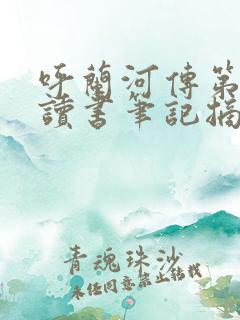 呼蘭河傳第
讀書筆記摘
青魂珠沙
未经同意禁止转载